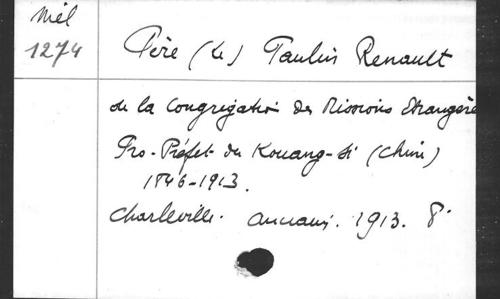 Mél
1274
Père (Le) Paulin Renault
de la Congrégation des Missions Etrangères
Pro-Préfet du Kouang-Si (Chine)
1846-1913.
Charleville. Anciaux. 1913. 8°